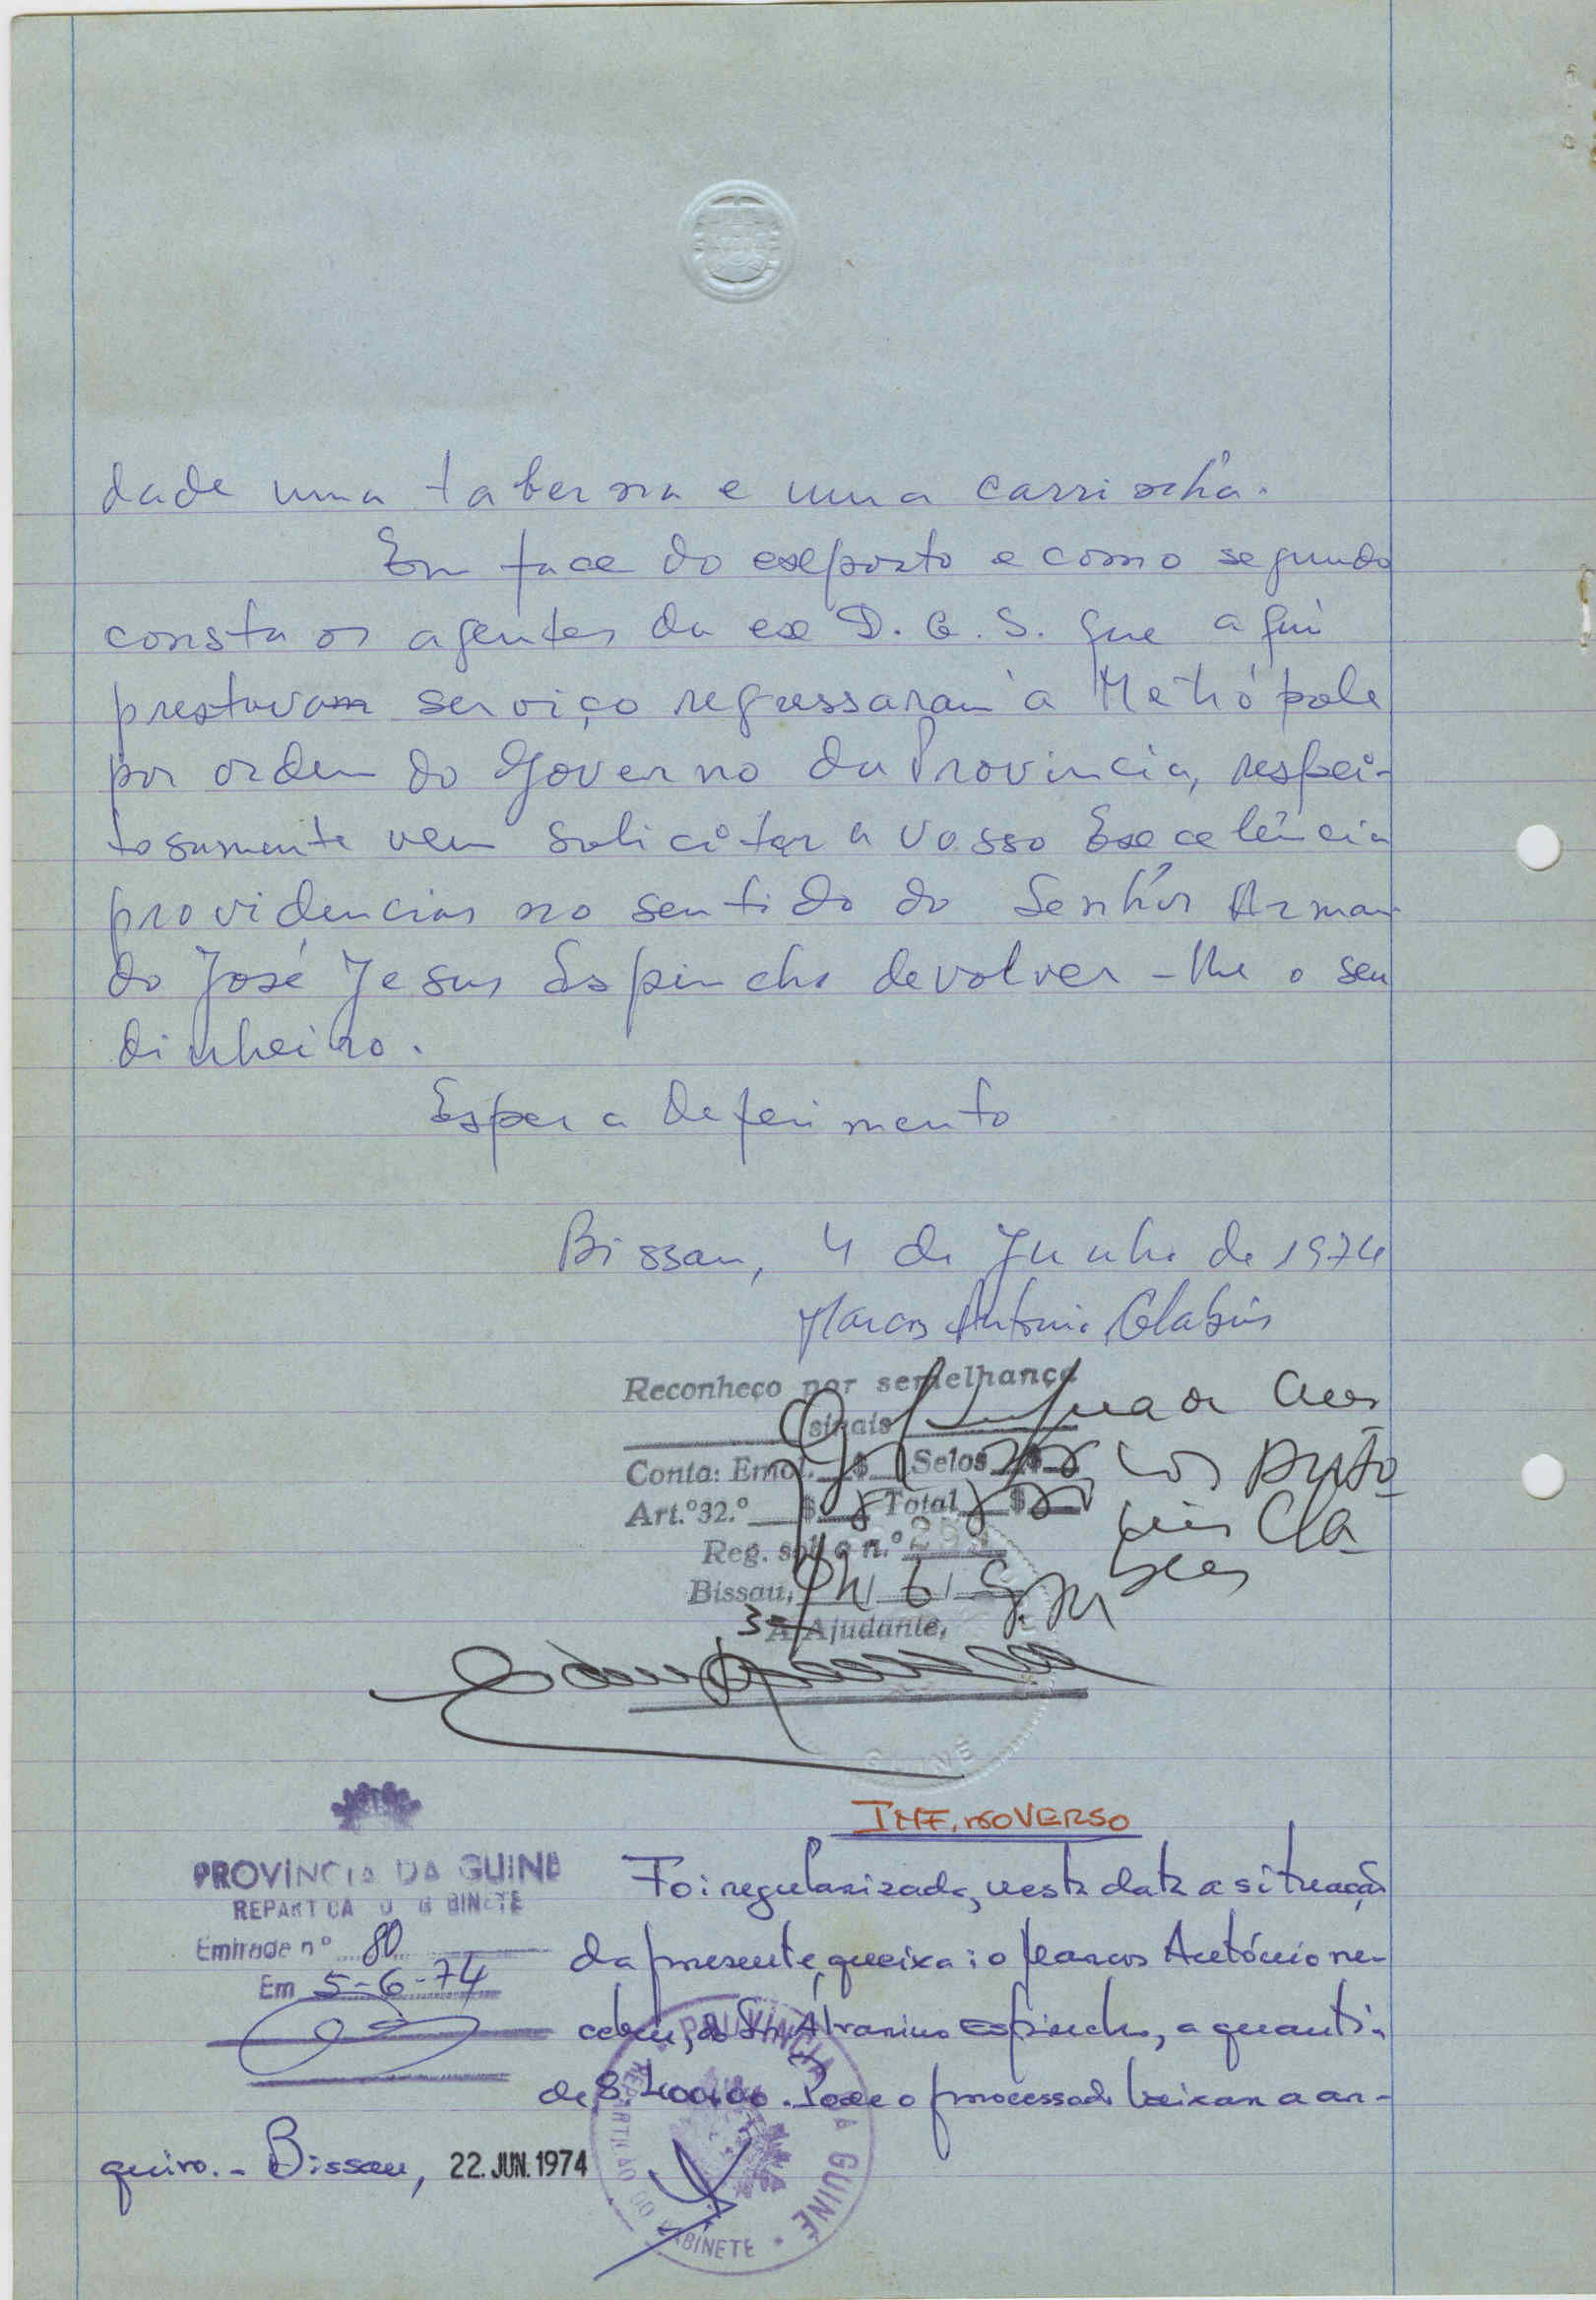 dade uma taberna e uma carrinha.
Em face do exposto e como segundo
consta os agentes da ex D. G. S. que aqui
prestavam serviço regressaram à Metrópole
por ordem do Governo da Provincia, respei-
tosamente vem solicitar a Vosso Excelência
providencias no sentido do Senhor Arman-
do José Jesus Espincho devolver-lhe o seu
dinheiro.
Espera deferimento
Bissau, 4 de Junho de 1974
Marcos António
Reconheço por semelhança
sinais
Conta: Emol. $ Selos $
Art.º 32.º $ Total $
Reg. sob o n.º
Bissau,
Ajudante,
GUINÉ
INF. NO VERSO
PROVÍNCIA DA GUINÉ
REPARTIÇÃO DO GABINETE
Entrada nº 80
Em 5-6-74
Foi regularizada, nesta data a situação
da presente queixa: o Marcos António re-
cebeu, do Sr. Espincho, a quanti-
de 8.400$00. Pode o processado baixar a ar-
quivo. - Bissau, 22.JUN.1974
PROVÍNCIA DA GUINÉ
REPARTIÇÃO DO GABINETE